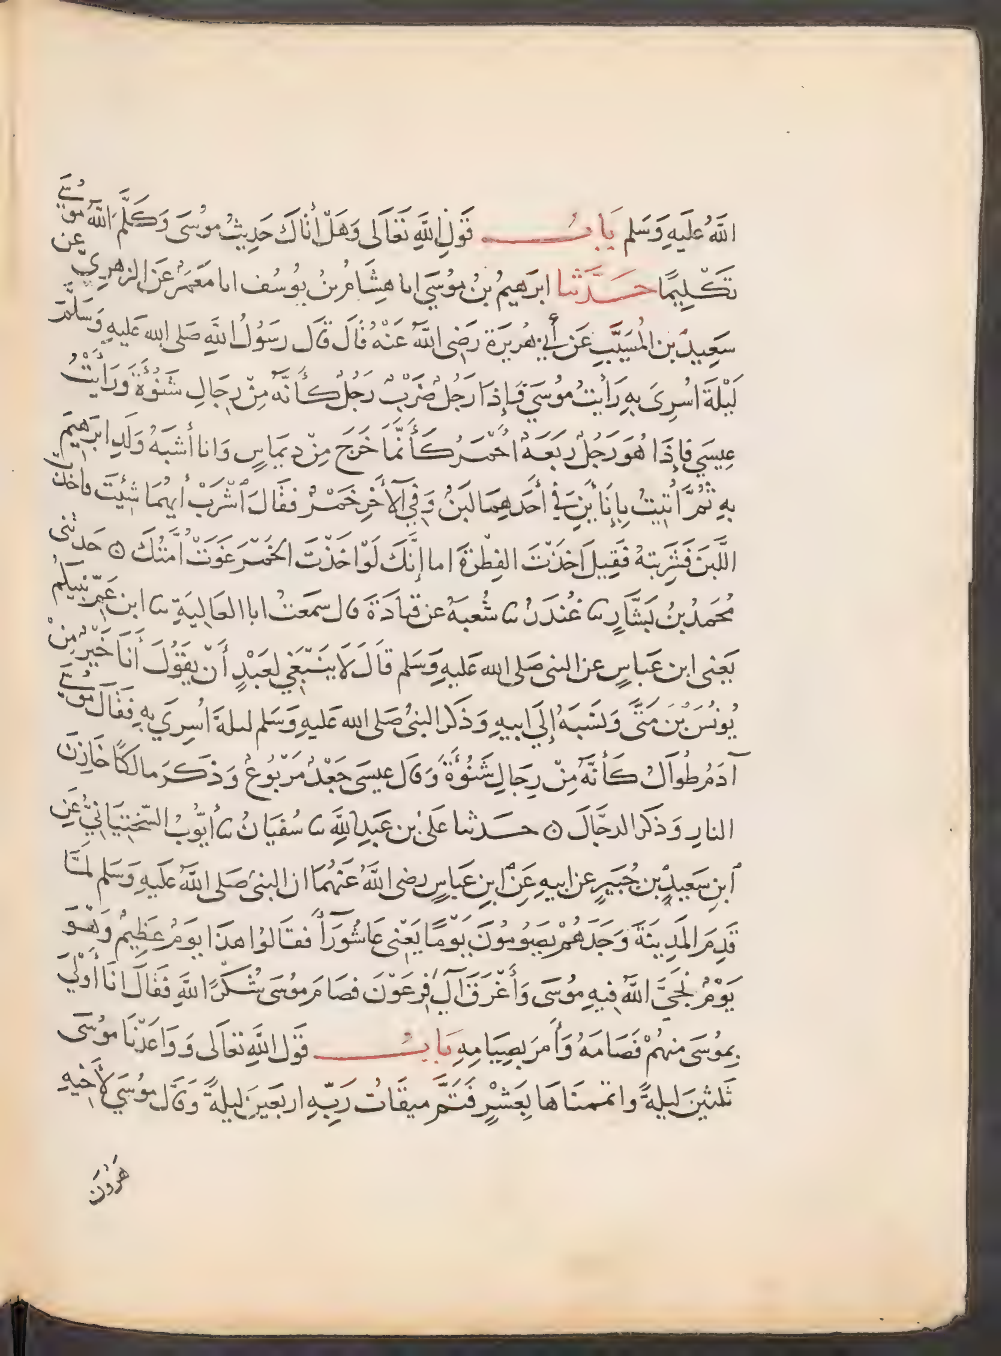 اللهُ عَليَه وَسَلم بَابُ قَولِ اللهِ تَعَالَى وَهَلْ أتَاكَ حَدِيثُ موُسَى وَكَلَّمَ اللهُ موُسَى
تَكْلِيمًا حَدَّثنا ابرَهيمُ بنُ موُسَى انا هِشَامُ بنُ يوُسُف انا مَعمَرٌ عَن الزهرِيّ عن
سَعِيدِ بن المُسَيَّبِ عَن أَبي هُرَيرَة رَضِى اللهُ عَنْهُ قَالَ قَالَ رَسُولُ اللهِ صَلى الله عَليهِ وَسَلَّمَ
لَيْلَةَ اسْرِىَ بهِ رَأيتُ موُسَى فَإِذَا رَجُلٌ ضَرْبٌ رَجُلٌ كَأَنَّه مِنْ رِجَالِ شَنُؤَةَ وَرَأَيْتُ
عِيسَي فإِذَا هُوَ رَجُلٌ رَبعَةٌ احْمَرُ كَأَنَّمَا خَرَجَ مِنْ دِيمَاسٍ وَانا أشبَهُ وَلَدِ ابرَهِيمَ
بهِ ثُمَّ أُتِيتُ بإِنَاأَينِ في أَحَدهِمَا لبَنٌ وَفِي الآخَرِ خَمْرٌ فقَالَ اشْرَبْ أَيهُمَا شِئتَ فاخذتُ
اللَّبَنَ فَشَرِبتهُ فَقِيلَ اخَذْتَ الفِطْرَةَ اما إنَّكَ لَوْ اخَذْتَ الخَمْرَ غَوَتْ أُمَّتُكَ ۝ حَدثني
مُحَمدُ بنُ بَشَّارٍ نا غُنْدَرٌ نا شُعبَةُ عن قتَادَةَ قال سَمعَتُ ابا العَاليَةِ نا ابن عَمِّ نبيكُم
يَعنِى ابن عَباسٍ عن النبي صَلى الله عَليهِ وَسَلم قَالَ لَا يَنبَغِي لعَبْدٍ أَنْ يقُولَ أَنَا خَيْرٌ مِنْ
يُونُسَ بنِ مَتَّى وَنسَبَهُ إلَى ابيهِ وَذَكَرَ النبيُ صَلى الله عَليهِ وَسَلم ليلةَ اُسرِيَ بِهِ فَقَالَ موُسَى
آدَمُ طُوَالٌ كَأَنَّهُ مِنْ رِجَالِ شَنُؤَةَ وَقَالَ عِيسَى جَعْدٌ مَرْبُوعٌ وَذَكَرَ مالكًا خَازِنَ
النارِ وَذَكَرَ الدجَّالَ ۝ حَدثنا عَليُ بن عَبدِ اللهِ نا سُفيَانُ نا أَيوُّبُ السَّخْتيَانِيُّ عَنِ
ابنِ سَعِيدِ بنِ جُبَيرٍ عن ابيهِ عَن ابنِ عَباسٍ رضي اللهُ عَنهُمَا ان النبيَ صَلى اللهُ عَليَهِ وَسَلم لمَّا
قَدِمَ المَدِينَةَ وَجَدَهُمْ يصَوُمُونَ يَوْمًا يَعْنِي عَاشُورَاءَ فقَالوُا هذَا يوَمٌ عَظِيمٌ وَهْوَ
يَوْمٌ نَجَّى اللهُ فِيهِ موُسَى وَأغْرَقَ آلَ فِرعَوْنَ فصَامَ موُسَى شُكْرًا للهِ فَقَالَ انَا أَوْلَى
بموُسَى مِنهُمْ فَصَامَهُ وَأَمَرَ بصِيَامِهِ بَابُ قَوَل اللهِ تعَالَى وَوَاعَدْنَا موُسَى
ثلَثِينَ ليلَةً واتممنَاهَا بِعَشْرٍ فَتَمَّ ميقَاتُ رَبِّهِ اربَعِينَ ليلَةً وَقَالَ موُسَي لأَخِيهِ
هَرُونَ